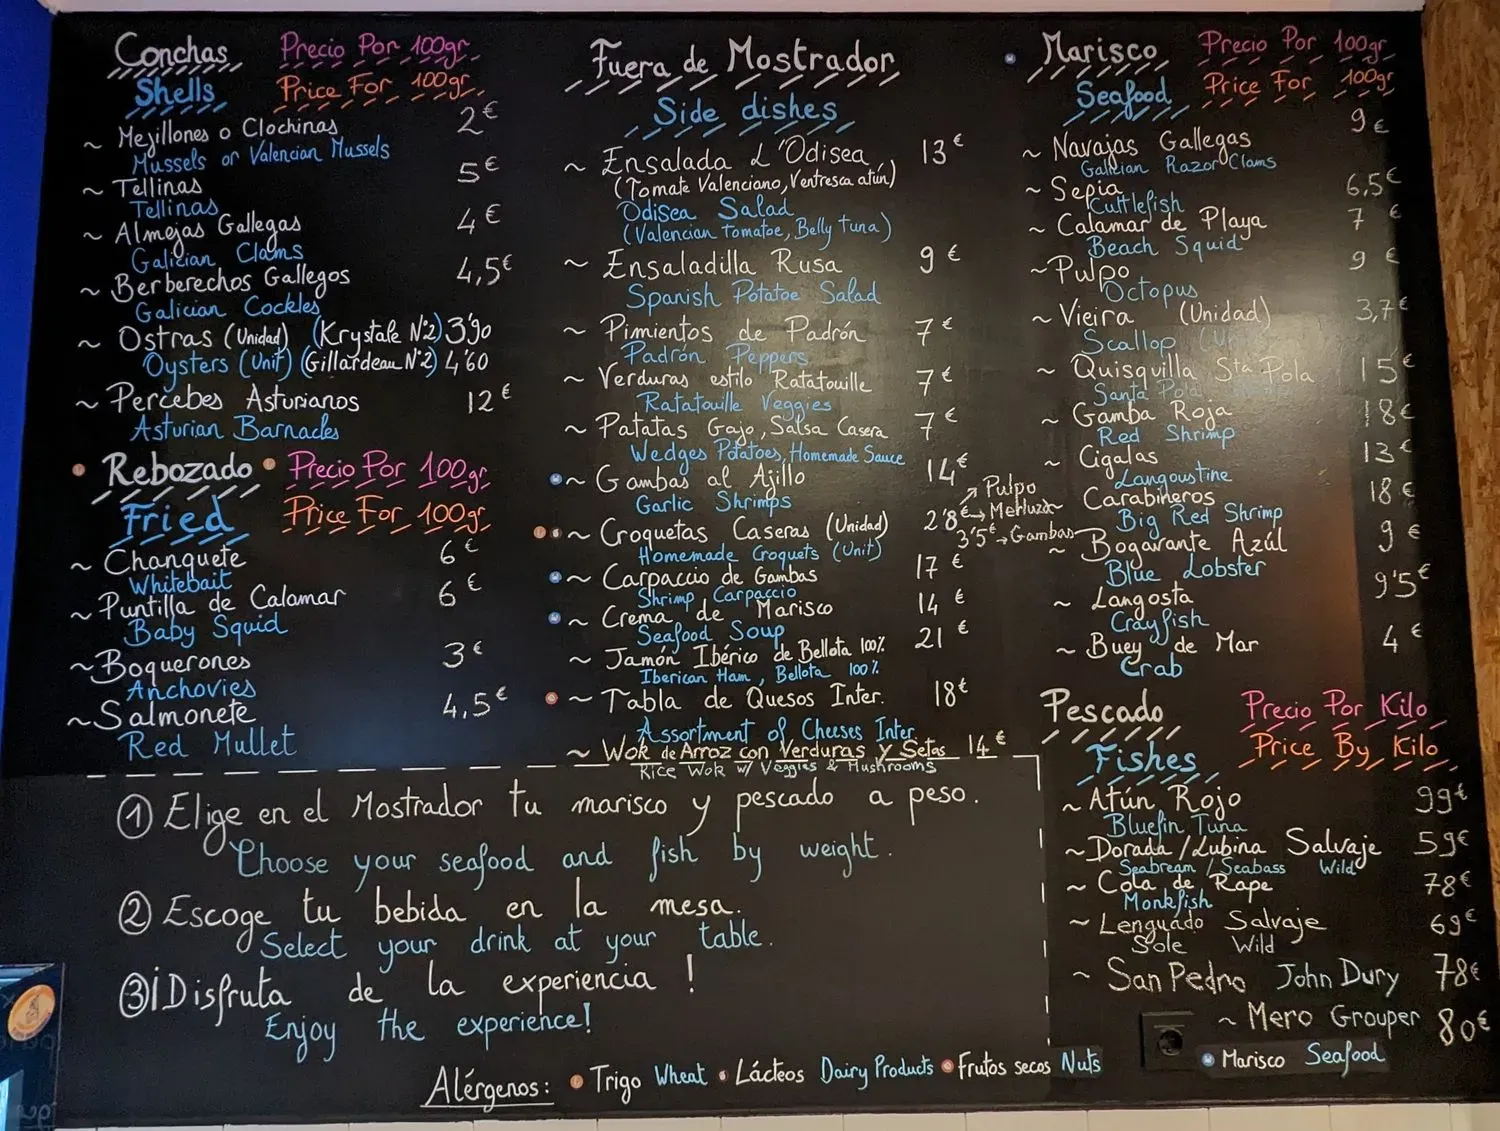 Conchas Precio Por 100gr
Shells Price For 100gr
~ Mejillones o Clochinas 2€
Mussels or Valencian Mussels
~ Tellinas 5€
Tellinas
~ Almejas Gallegas 4€
Galician Clams
~ Berberechos Gallegos 4,5€
Galician Cockles
~ Ostras (Unidad) (Krystale Nº2) 3'90
Oysters (Unit) (Gillardeau Nº2) 4'60
~ Percebes Asturianos 12€
Asturian Barnacles
Rebozado Precio Por 100gr
Fried Price For 100gr
~ Chanquete 6€
Whitebait
~ Puntilla de Calamar 6€
Baby Squid
~ Boquerones 3€
Anchovies
~ Salmonete 4,5€
Red Mullet
Fuera de Mostrador
Side dishes
~ Ensalada L'Odisea 13€
(Tomate Valenciano, Ventresca atún)
Odisea Salad
(Valencian tomatoe, Belly Tuna)
~ Ensaladilla Rusa 9€
Spanish Potatoe Salad
~ Pimientos de Padrón 7€
Padrón Peppers
~ Verduras estilo Ratatouille 7€
Ratatouille Veggies
~ Patatas Gajo, Salsa Casera 7€
Wedges Potatoes, Homemade Sauce
~ Gambas al Ajillo 14€
Garlic Shrimps
~ Croquetas Caseras (Unidad) 2'8€ → Pulpo → Merluza
3'5€ → Gambas
Homemade Croquets (Unit)
~ Carpaccio de Gambas 17€
Shrimp Carpaccio
~ Crema de Marisco 14€
Seafood Soup
~ Jamón Ibérico de Bellota 100% 21€
Iberican Ham, Bellota 100%
~ Tabla de Quesos Inter. 18€
Assortment of Cheeses Inter.
~ Wok de Arroz con Verduras y Setas 14€
Rice Wok w/ Veggies & Mushrooms
Marisco Precio Por 100gr
Seafood Price For 100gr
~ Navajas Gallegas 9€
Galician Razor Clams
~ Sepia 6,5€
Cuttlefish
~ Calamar de Playa 7€
Beach Squid
~ Pulpo 9€
Octopus
~ Vieira (Unidad) 3,7€
Scallop
~ Quisquilla Sta Pola 15€
Santa Pola
~ Gamba Roja 18€
Red Shrimp
~ Cigalas 13€
Langoustine
Carabineros 18€
Big Red Shrimp
~ Bogavante Azúl 9€
Blue Lobster
~ Langosta 9'5€
Crayfish
~ Buey de Mar 4€
Crab
Pescado Precio Por Kilo
Fishes Price By Kilo
~ Atún Rojo 99€
Bluefin Tuna
~ Dorada / Lubina Salvaje 59€
Seabream / Seabass Wild
~ Cola de Rape 78€
Monkfish
~ Lenguado Salvaje 69€
Sole Wild
~ San Pedro John Dury 78€
~ Mero Grouper 80€
① Elige en el Mostrador tu marisco y pescado a peso.
Choose your seafood and fish by weight.
② Escoge tu bebida en la mesa.
Select your drink at your table.
③ ¡Disfruta de la experiencia!
Enjoy the experience!
Alérgenos: Trigo Wheat Lácteos Dairy Products Frutos secos Nuts Marisco Seafood